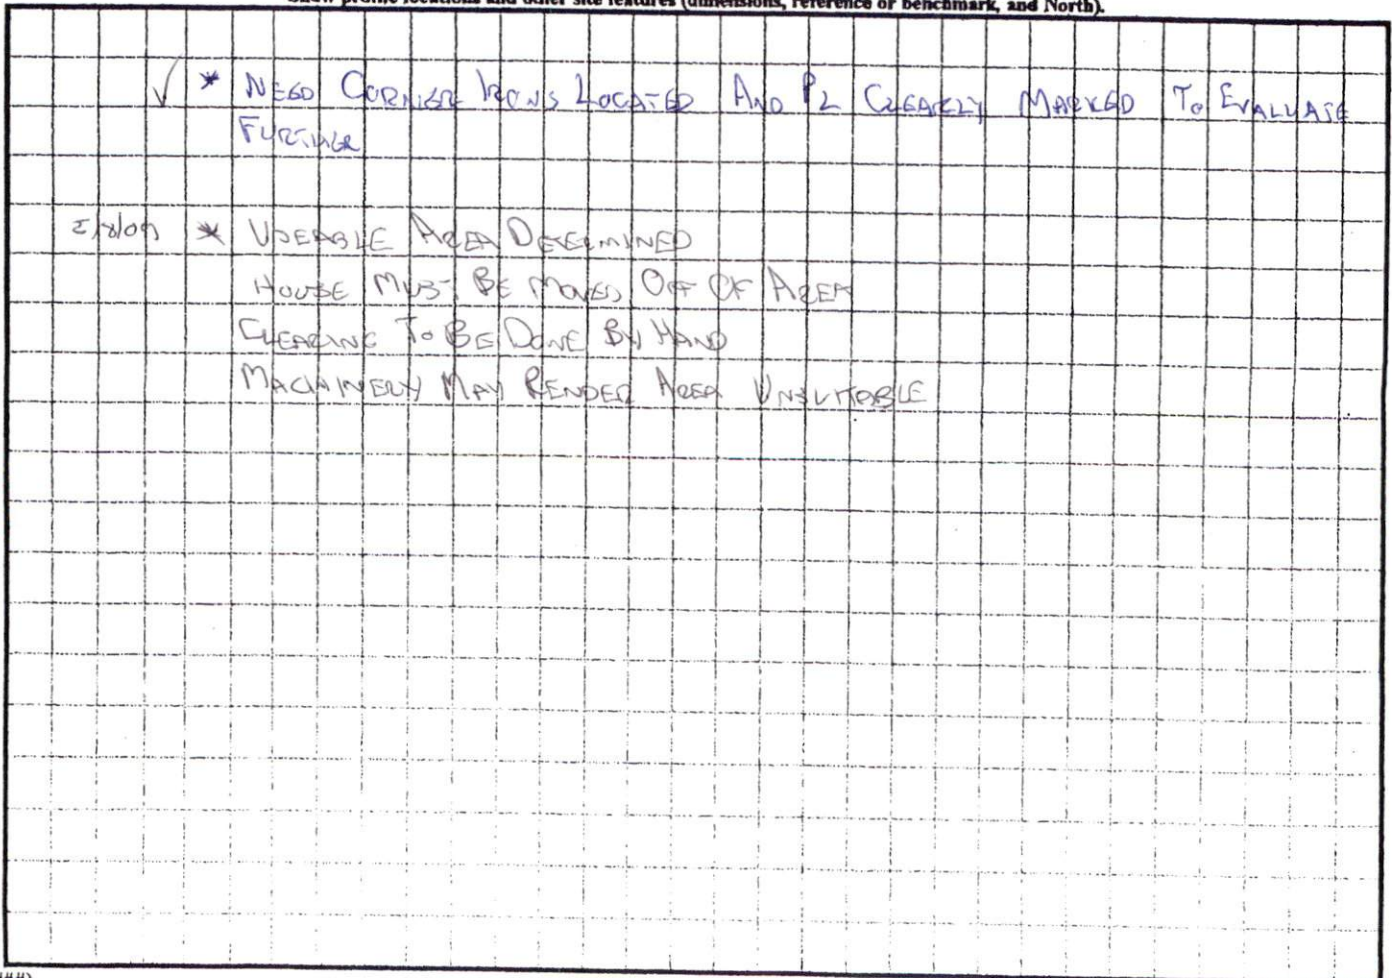 Show profile locations and other site features (dimensions, reference or benchmark, and North).
✓ * NEED CORNER IRONS LOCATED AND PL CLEARLY MARKED TO EVALUATE
FURTHER
* USEABLE AREA DETERMINED
HOUSE MUST BE MOVED OFF OF AREA
CLEARING TO BE DONE BY HAND
MACHINERY MAY RENDER AREA UNSUITABLE